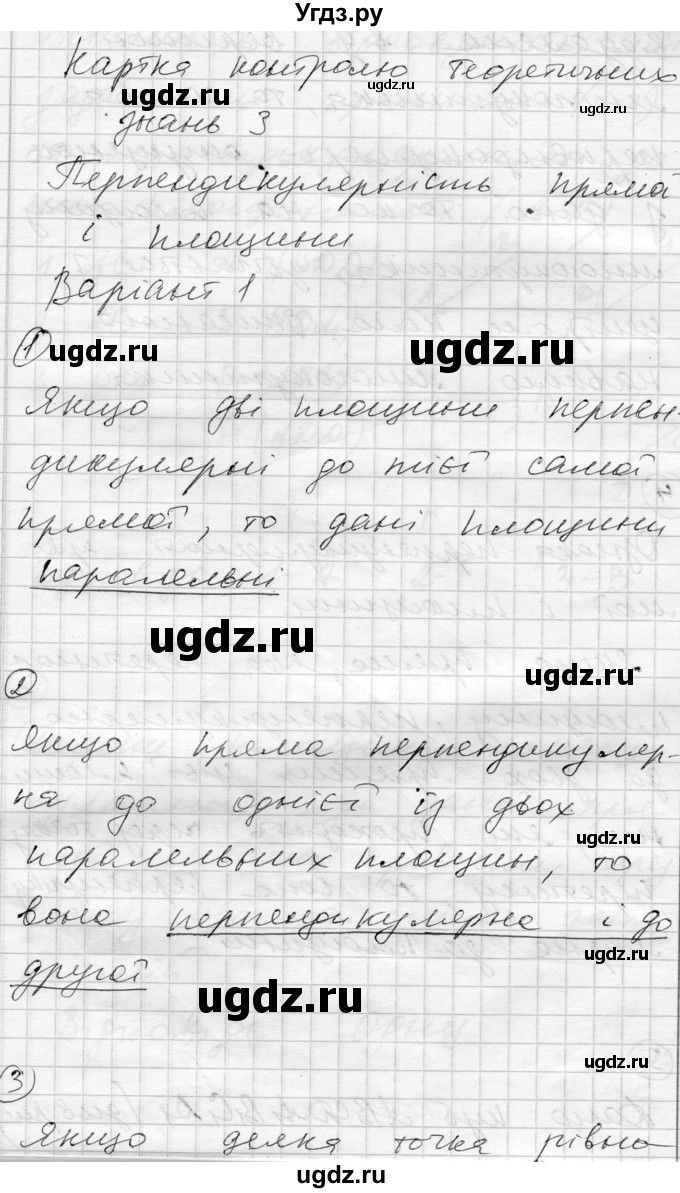 Угдз.ру
Картка контролю теоретичних
ugdz.ru ugdz.ru
знань 3
Перпендикулярність прямої
і площини
Варіант 1
1 ugdz.ru ugdz.ru
Якщо дві площини перпен-
дикулярні до тієї самої
прямої, то дані площини
паралельні
ugdz.ru
ugdz.ru
2
Якщо пряма перпендикуляр-
на до однієї із двох
ugdz.ru
паралельних площин, то
вона перпендикулярна і до
другої
ugdz.ru
ugdz.ru
3
Якщо деяка точка рівно
ugdz.ru